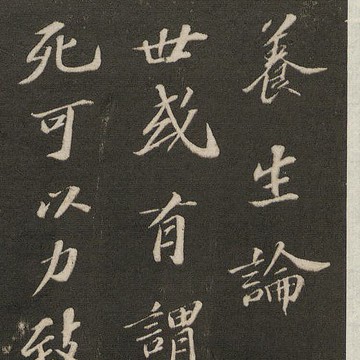 養生論
世或有謂
死可以力致